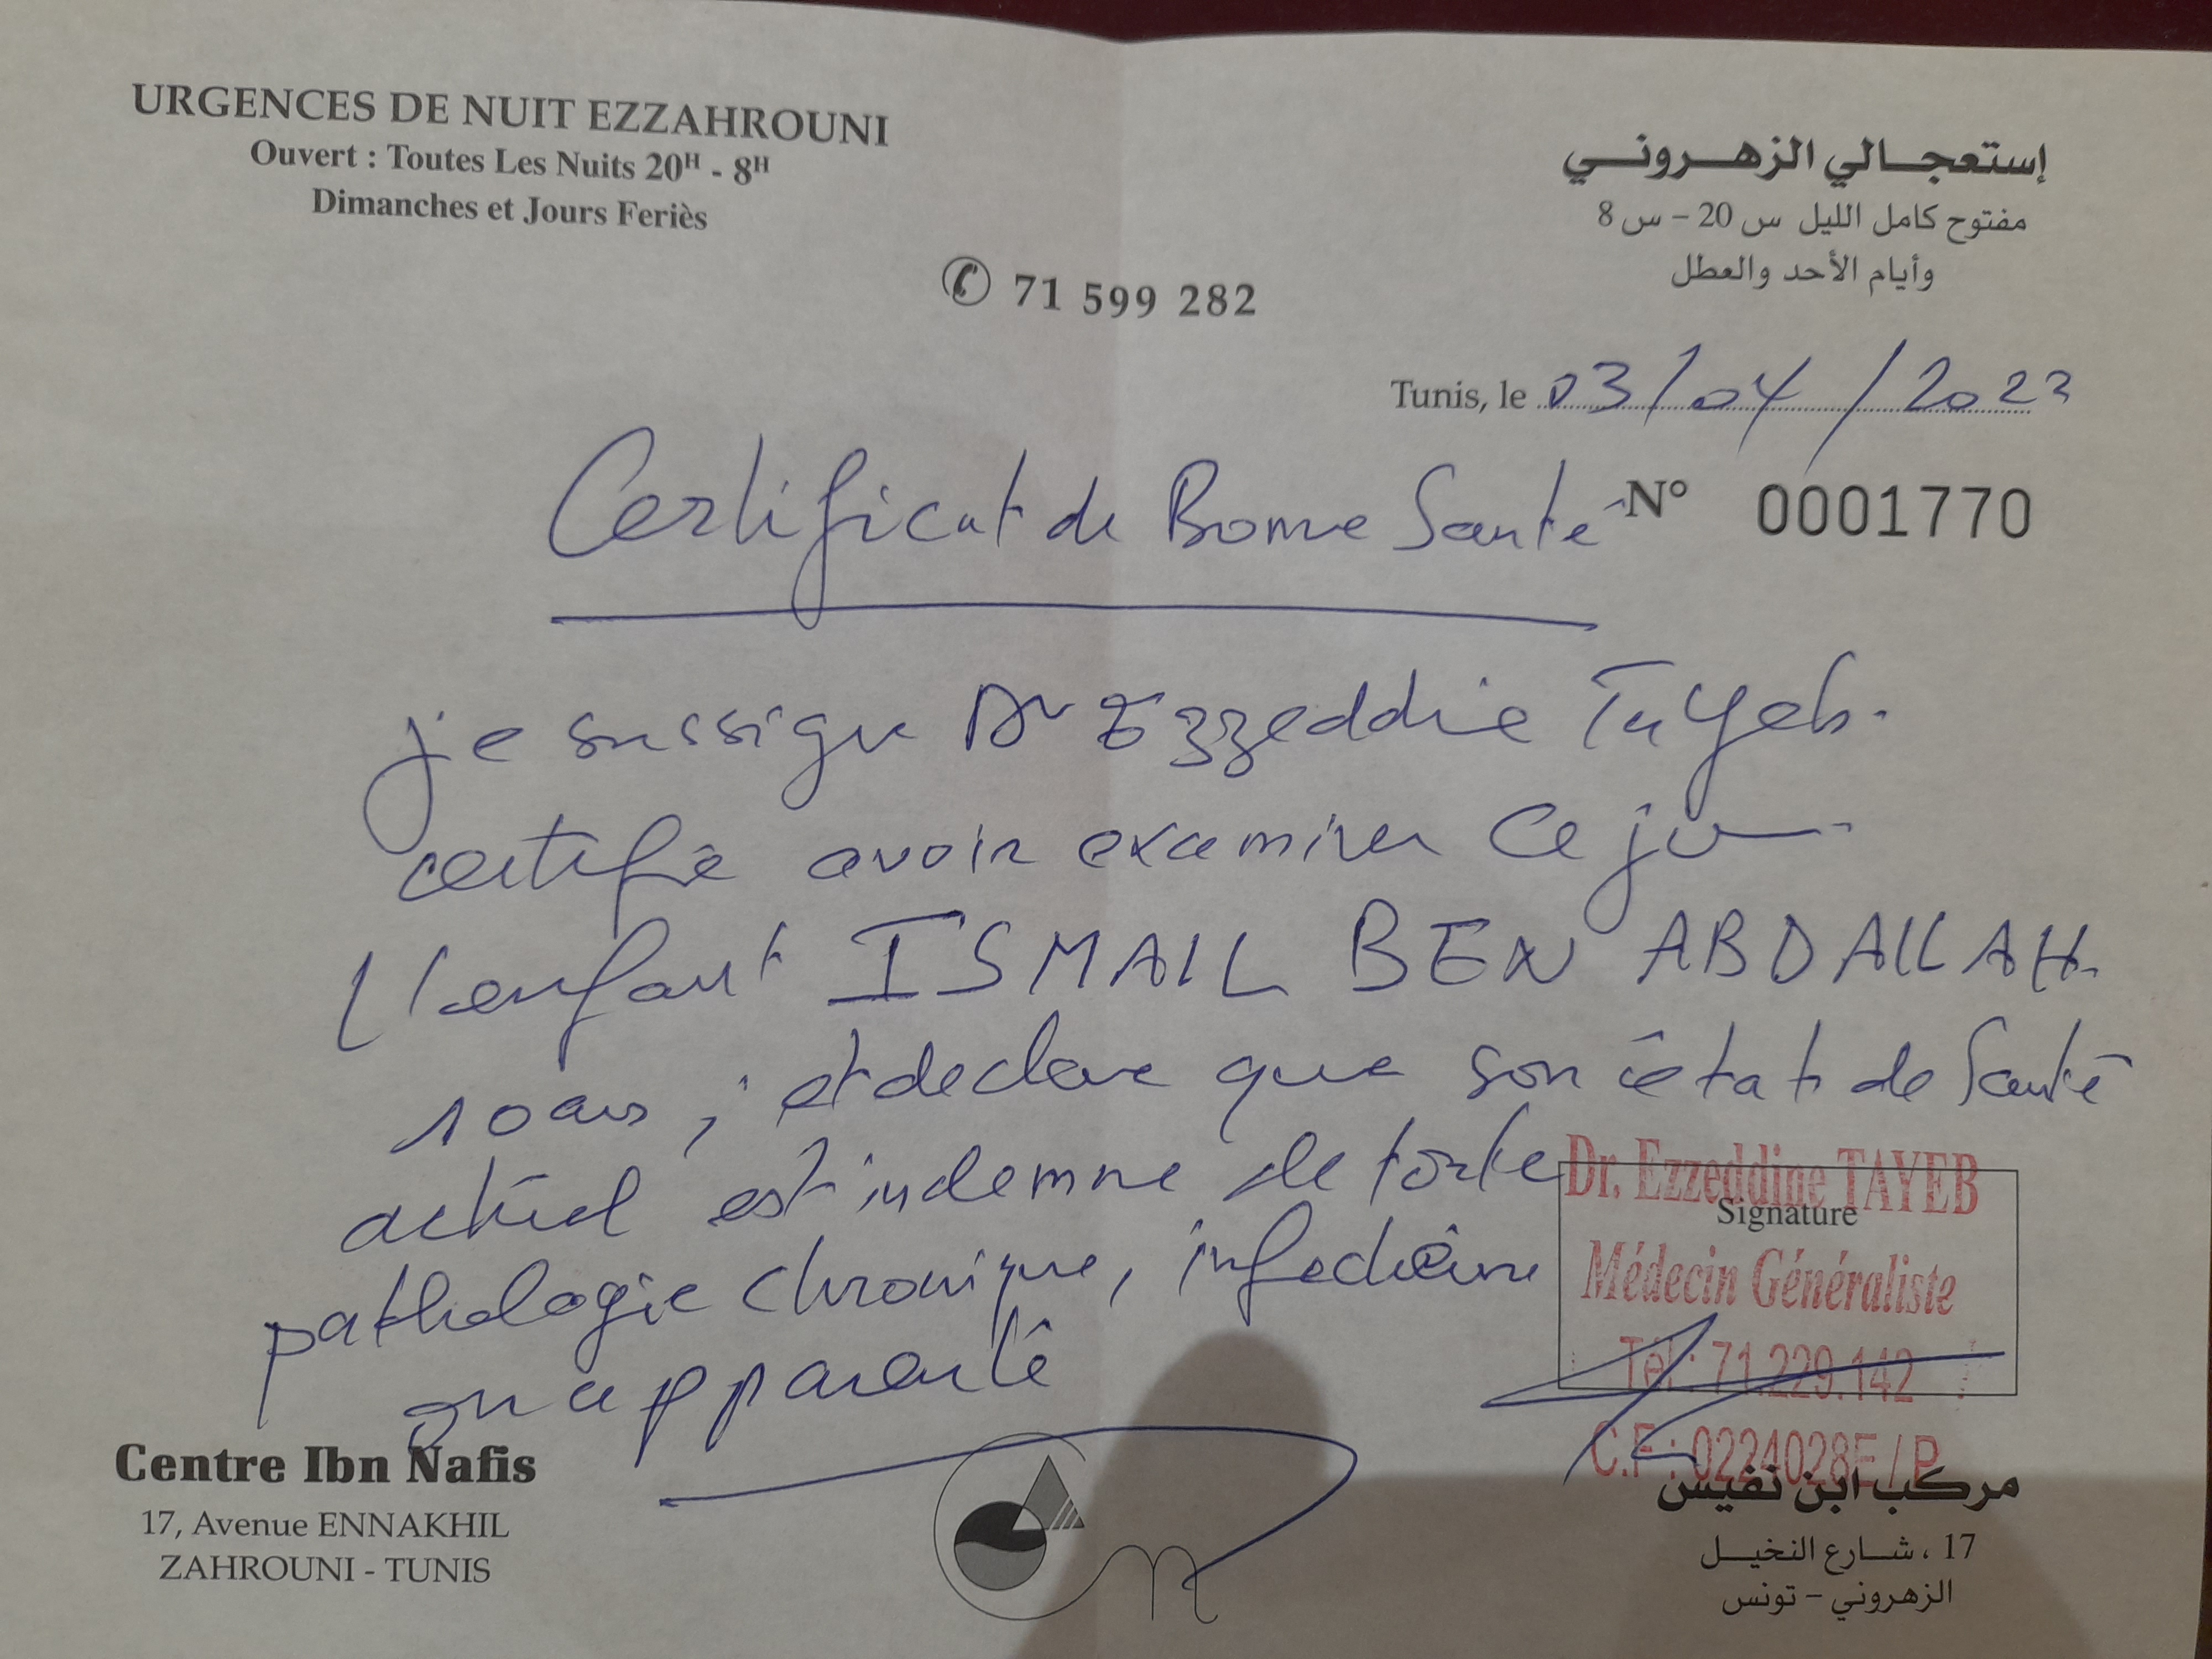 URGENCES DE NUIT EZZAHROUNI
Ouvert : Toutes Les Nuits 20H - 8H
Dimanches et Jours Feriès
إستعجالي الزهروني
مفتوح كامل الليل س 20 - س 8
وأيام الأحد والعطل
✆ 71 599 282
Tunis, le 03/04/2023
Certificat de Bonne Santé N° 0001770
je soussigne Dr Ezzeddie Tayeb.
certifie avoir examiner ce jour
l'enfant ISMAIL BEN ABDALLAH.
10 ans, et declare que son état de Santé
actuel est indemne de toute
pathologie chronique, infectieuse
ou apparente
Dr. Ezzeddine TAYEB
Signature
Médecin Généraliste
Tél : 71.229.142
C.F : 0224028E/P
Centre Ibn Nafis
17, Avenue ENNAKHIL
ZAHROUNI - TUNIS
مركب ابن نفيس
17 ، شارع النخيل
الزهروني - تونس